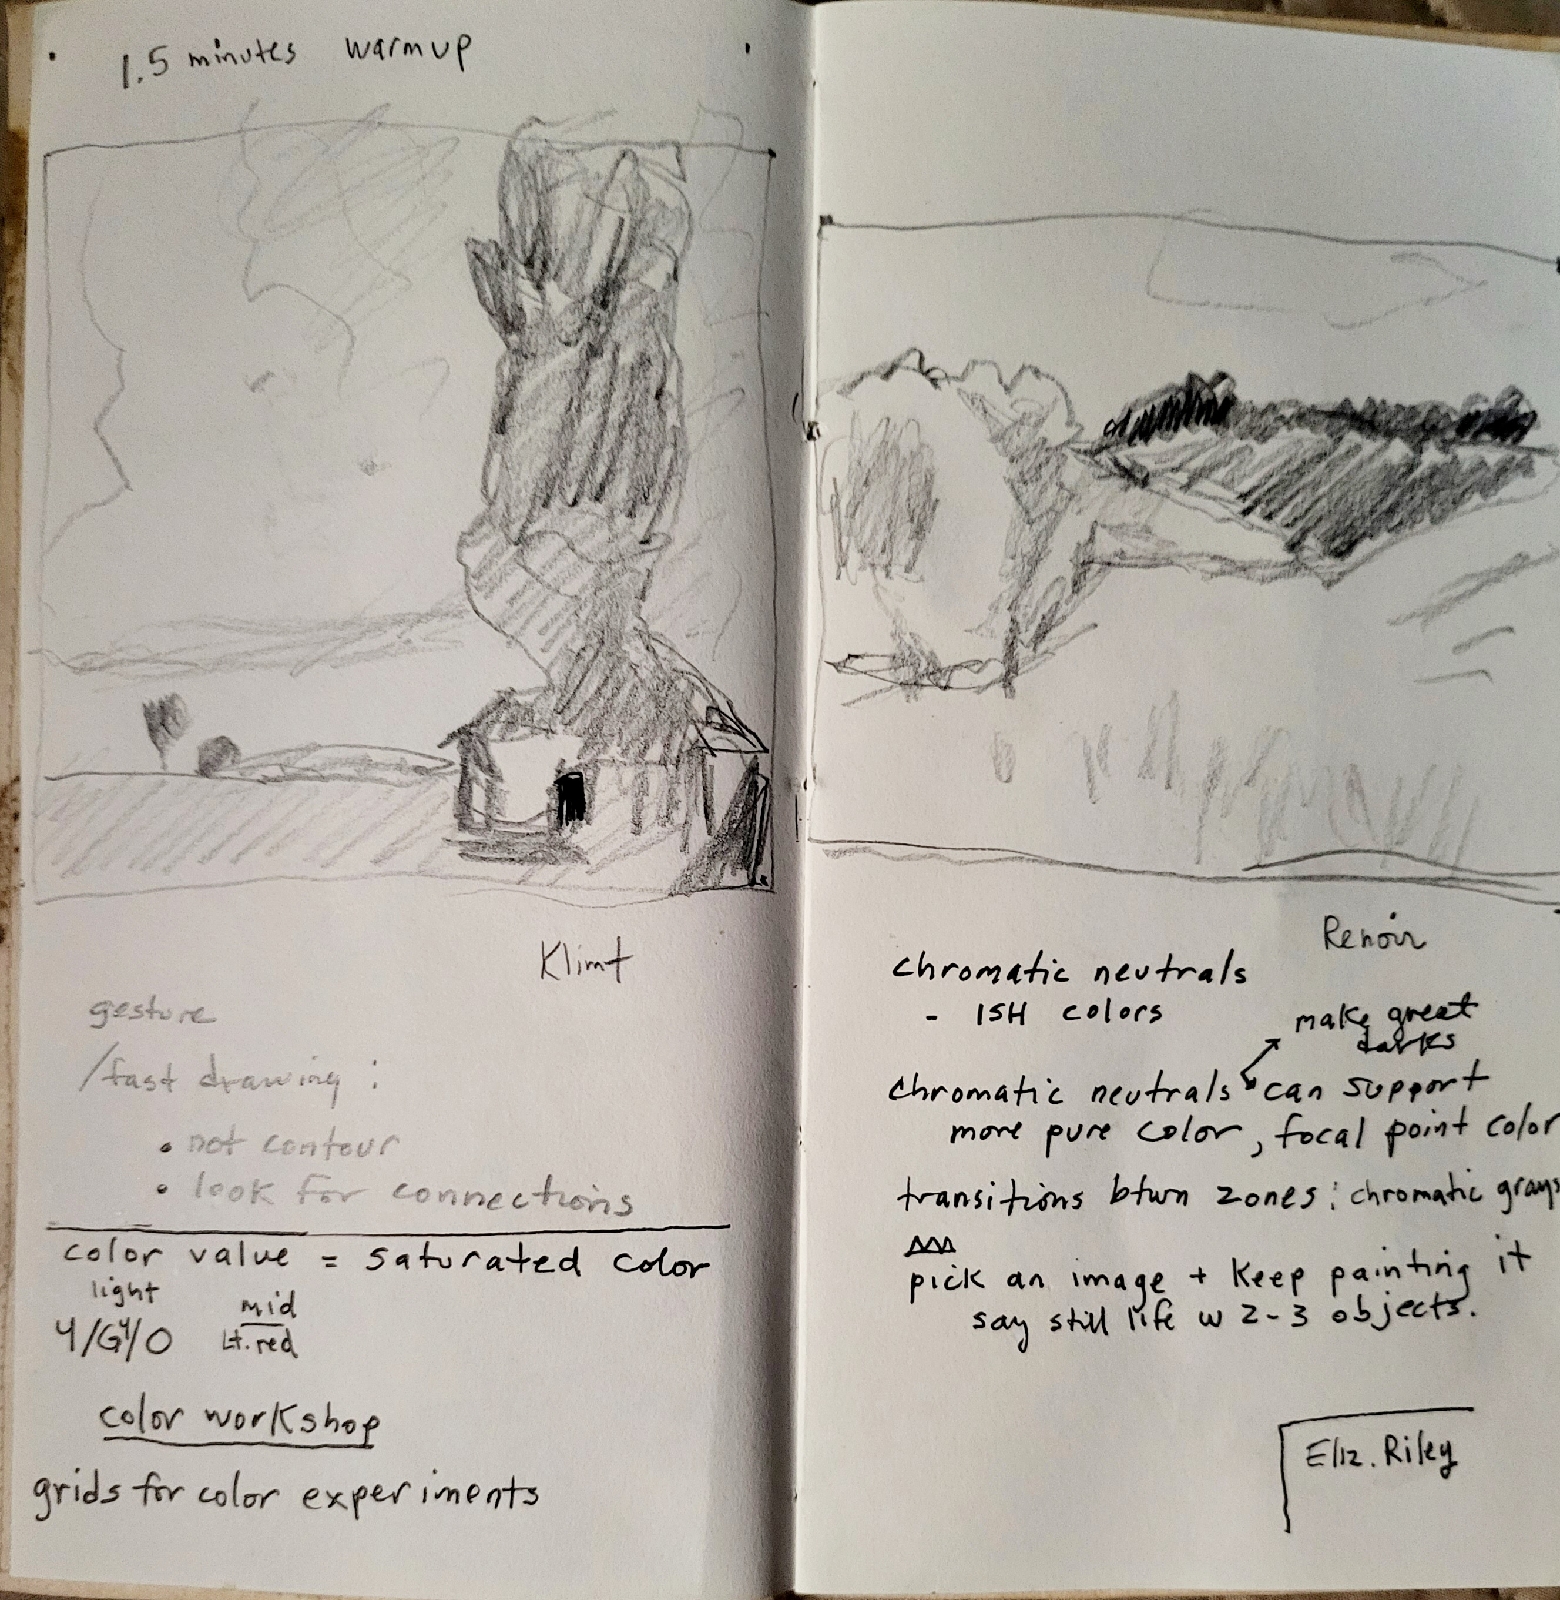 1.5 minutes warmup
Klimt
gesture
/fast drawing:
• not contour
• look for connections
color value = saturated color
light
mid
Y/GY/O
Lt. red
color workshop
grids for color experiments
Renoir
chromatic neutrals
- ISH colors
make great
darks
chromatic neutrals can support
more pure color, focal point color
transitions btwn zones: chromatic grays
pick an image + keep painting it
say still life w 2-3 objects.
Eliz. Riley